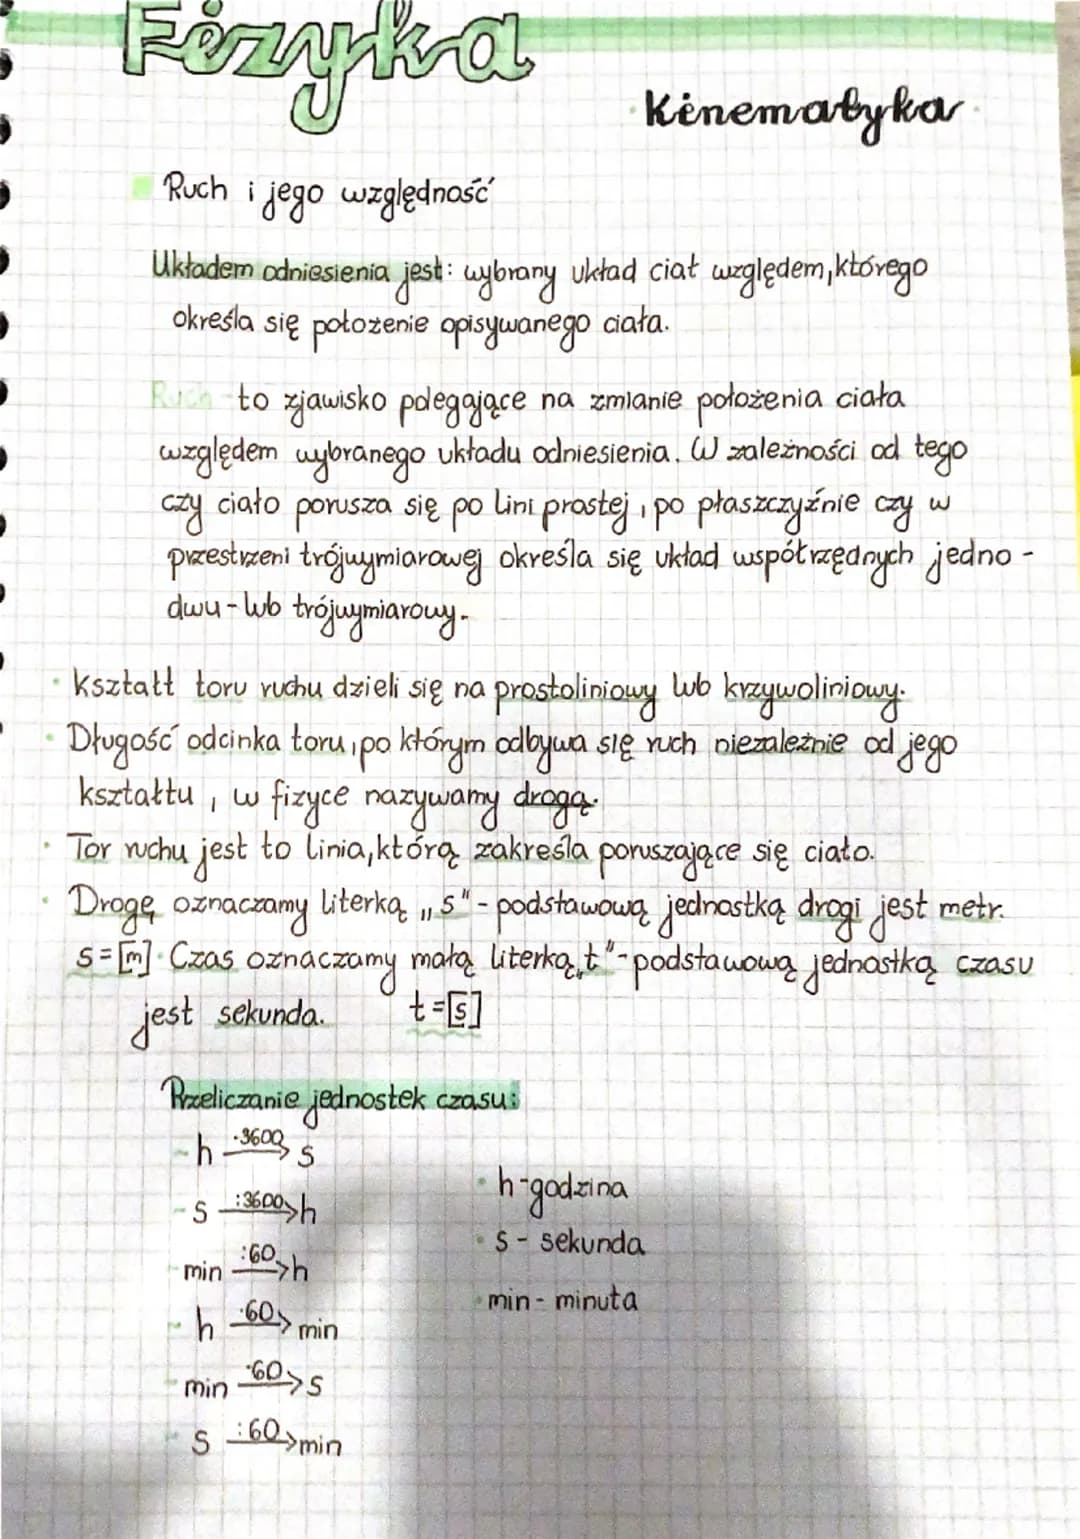 Fizyka
Kinematyka
Ruch i jego względność
Układem odniesienia jest: wybrany układ ciał względem, którego
określa się położenie opisywanego ciała.
Ruch - to zjawisko polegające na zmianie położenia ciała
względem wybranego układu odniesienia. W zależności od tego
czy ciało porusza się po lini prostej, po płaszczyźnie czy w
przestrzeni trójwymiarowej określa się układ współrzędnych jedno -
dwu - lub trójwymiarowy.
• kształt toru ruchu dzieli się na prostoliniowy lub krzywoliniowy.
• Długość odcinka toru, po którym odbywa się ruch niezależnie od jego
kształtu, w fizyce nazywamy drogą.
• Tor ruchu jest to linia, którą zakreśla poruszające się ciało.
• Drogę oznaczamy literką „s" - podstawową jednostką drogi jest metr.
s=[m] Czas oznaczamy małą literką „t" - podstawową jednostką czasu
jest sekunda. t=[s]
Przeliczanie jednostek czasu:
- h ·3600> s
- s :3600> h
- min :60> h
- h ·60> min
- min ·60> s
- s :60> min
• h - godzina
• s - sekunda
• min - minuta